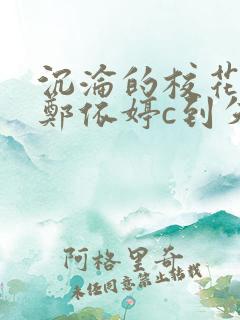 沉淪的校花
鄭依婷c到
阿格里奇
未经同意禁止转载